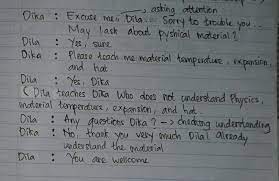 asking attention
Dika : Excuse me, Dila... Sorry to trouble you..
May I ask about pyshical material?
Dila : Yes, sure
Dika : Please teach me material temperature, expansion,
and hat
Dila : Yes, Dika
(Dila teaches Dika who does not understand Physics,
material temperature, expansion, and hat.
Dila : Any questions Dika? → checking understanding
Dika : No, thank you very much Dila I already
understand the material
Dila : You are welcome